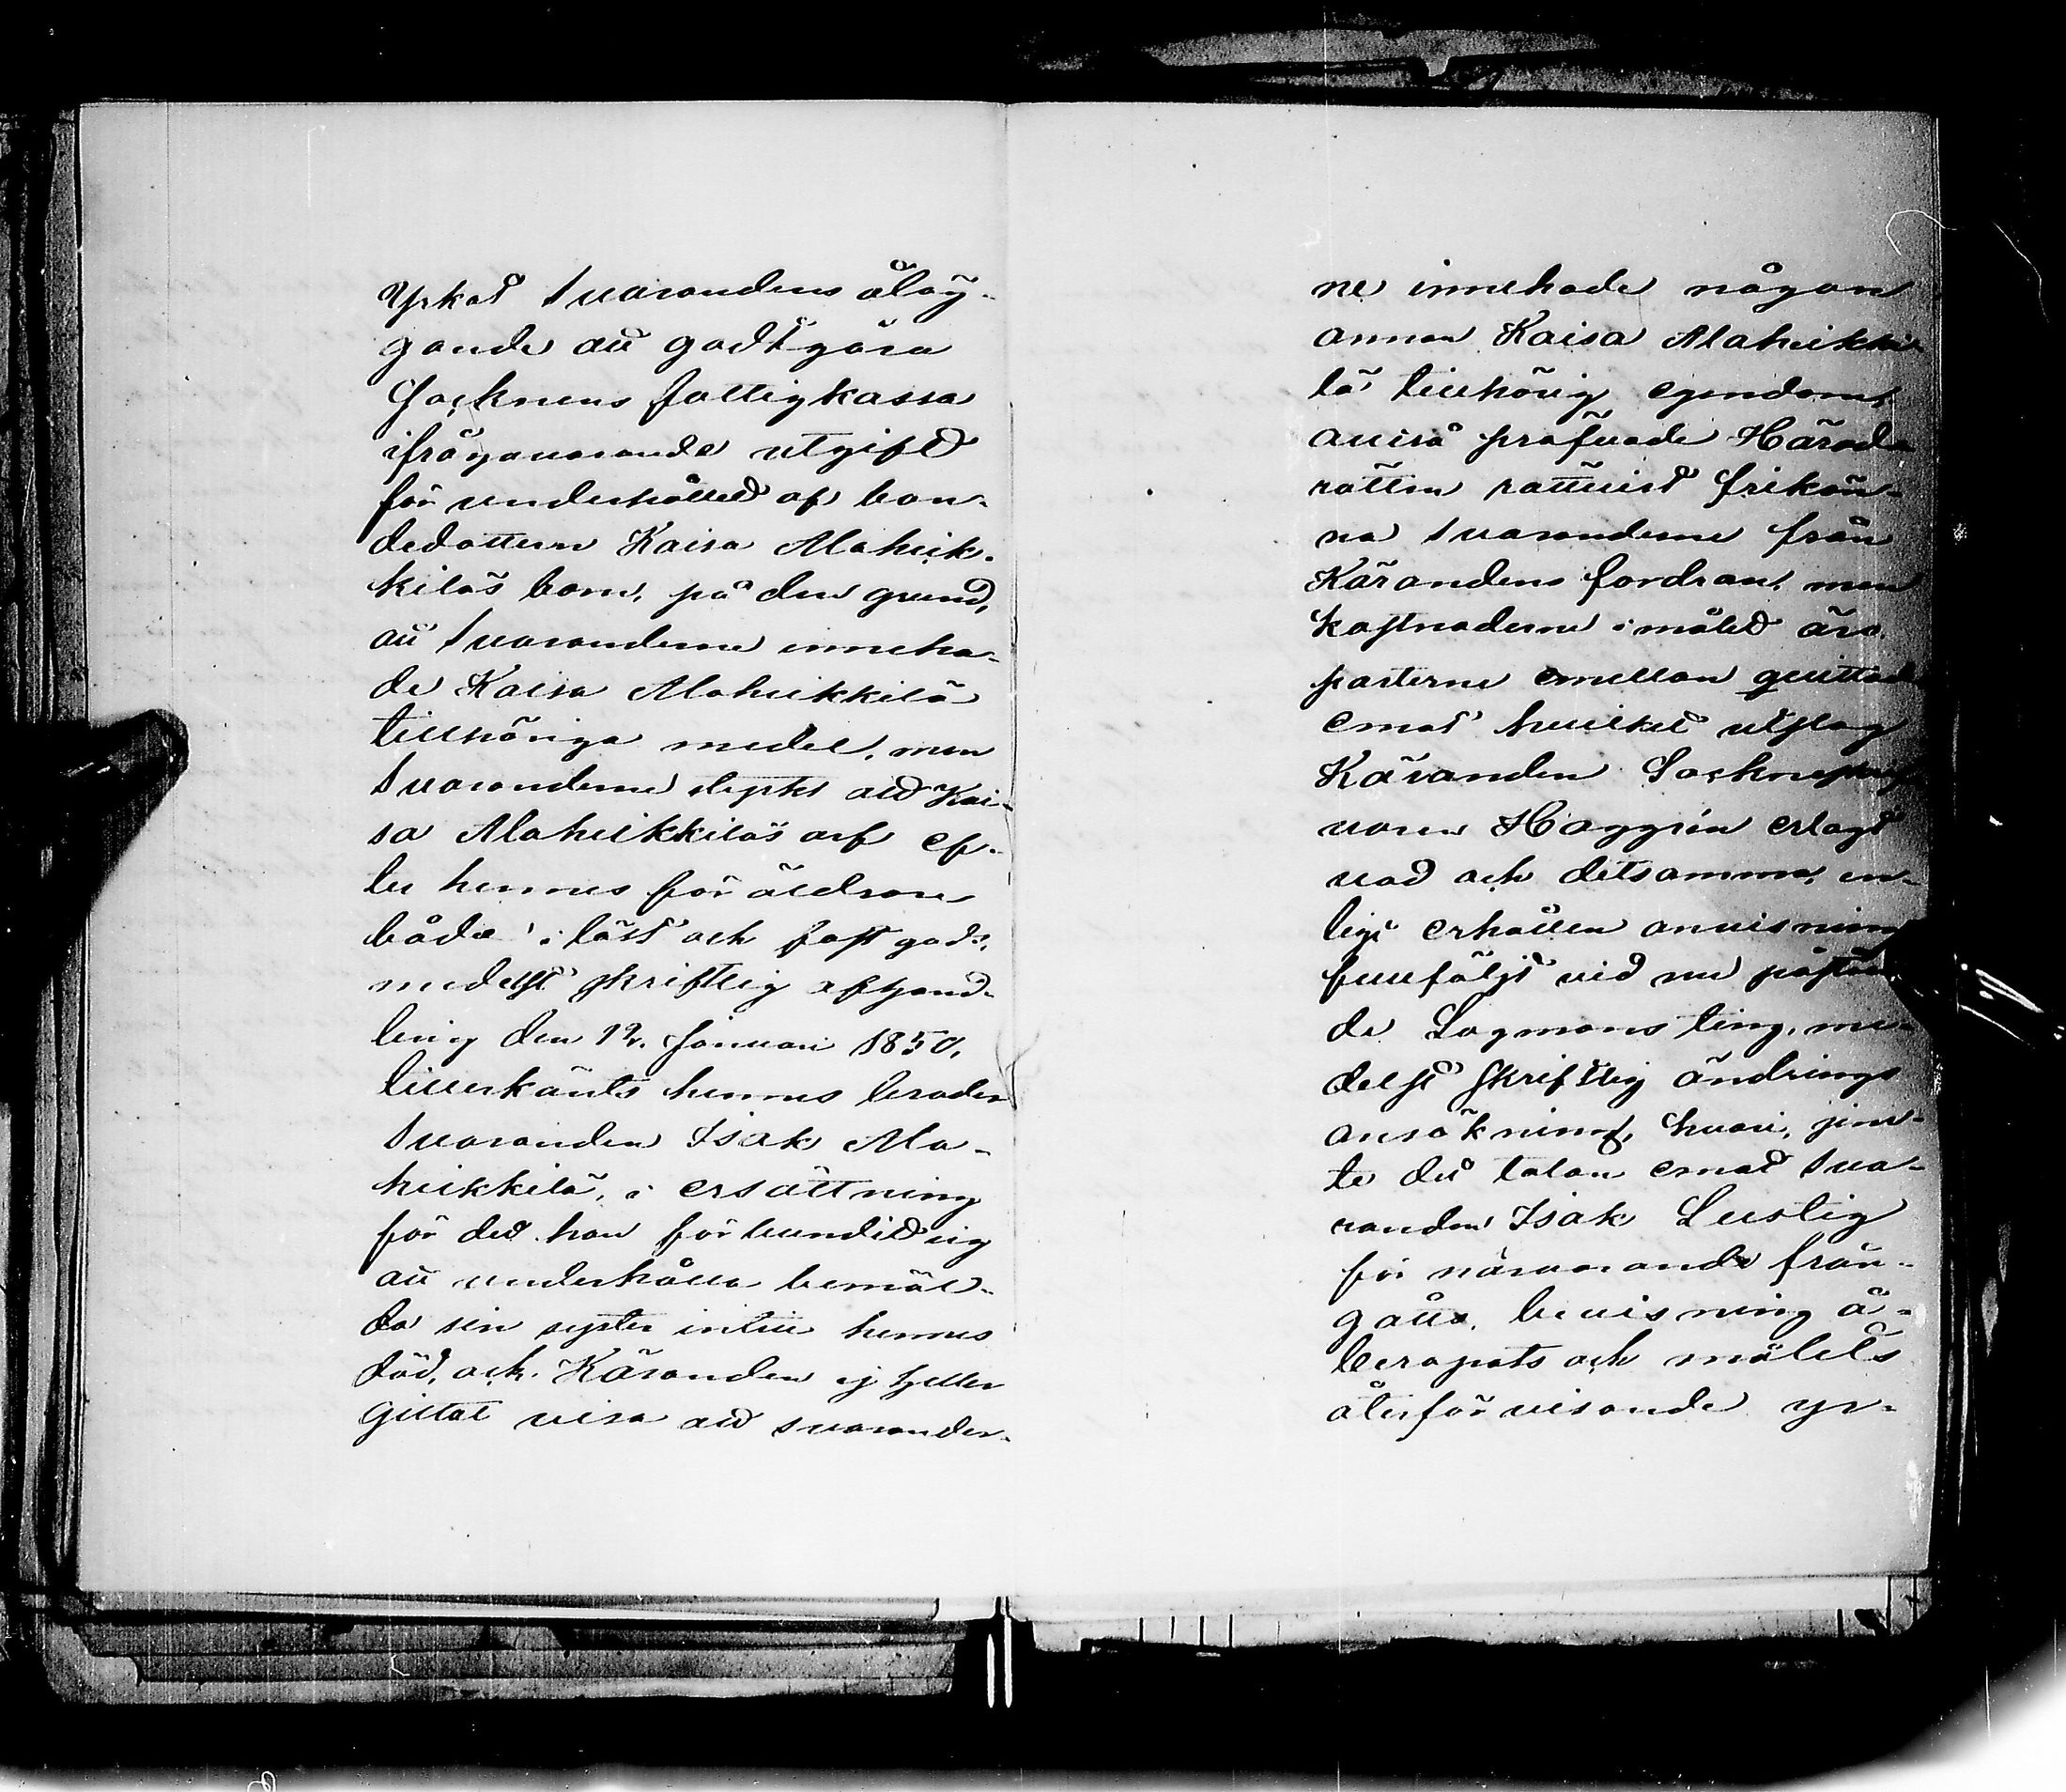 yrkat Svarandens åläg-
gande att godtgöra
Socknens fattigkassa
ifrågavarande utgift
för underhållet af bon-
dedottern Kaisa Alaheik-
kiläs barn, på den grund,
att Svaranderne inneha-
de Kaisa Alaheikkilä
tillhöriga medel, men
Svaranderne styrkt att Kai-
sa Alaheikkiläs arf ef-
ter hennes föräldrar
både i löst och fast gods,
medelst skriftlig afhand-
ling den 12. Januari 1850,
tillerkänts hennes broder
Svaranden Isak Ala-
heikkilä, i ersättning
för det han förbundit sig
att underhålla bemäl-
da sin syster intill hennes
död, och Käranden ej heller
gittat visa att svarander-
ne innehade någon
annan Kaisa Alaheikki-
lä tillhörig egendom,
altså pröfvade Härads
rätten rättvist frikän-
na Svaranderne från
Kärandens fordran, men
kostnaderne i målet äro
parterne emellan quittade
emot hvilket utslag
Käranden Sockne
varen Häggrén erlagt
vad och detsamma, en-
ligt erhållen anvisning
fullföljt vid nu påståen-
de Lagmans ting, me-
delst skriftlig ändrings
ansökning, hvari, jem-
te det talan emot Sva-
randen Isak Lustig
för närvarande från-
gåtts, bevisning å-
beropats och målets
återförvisande yr-